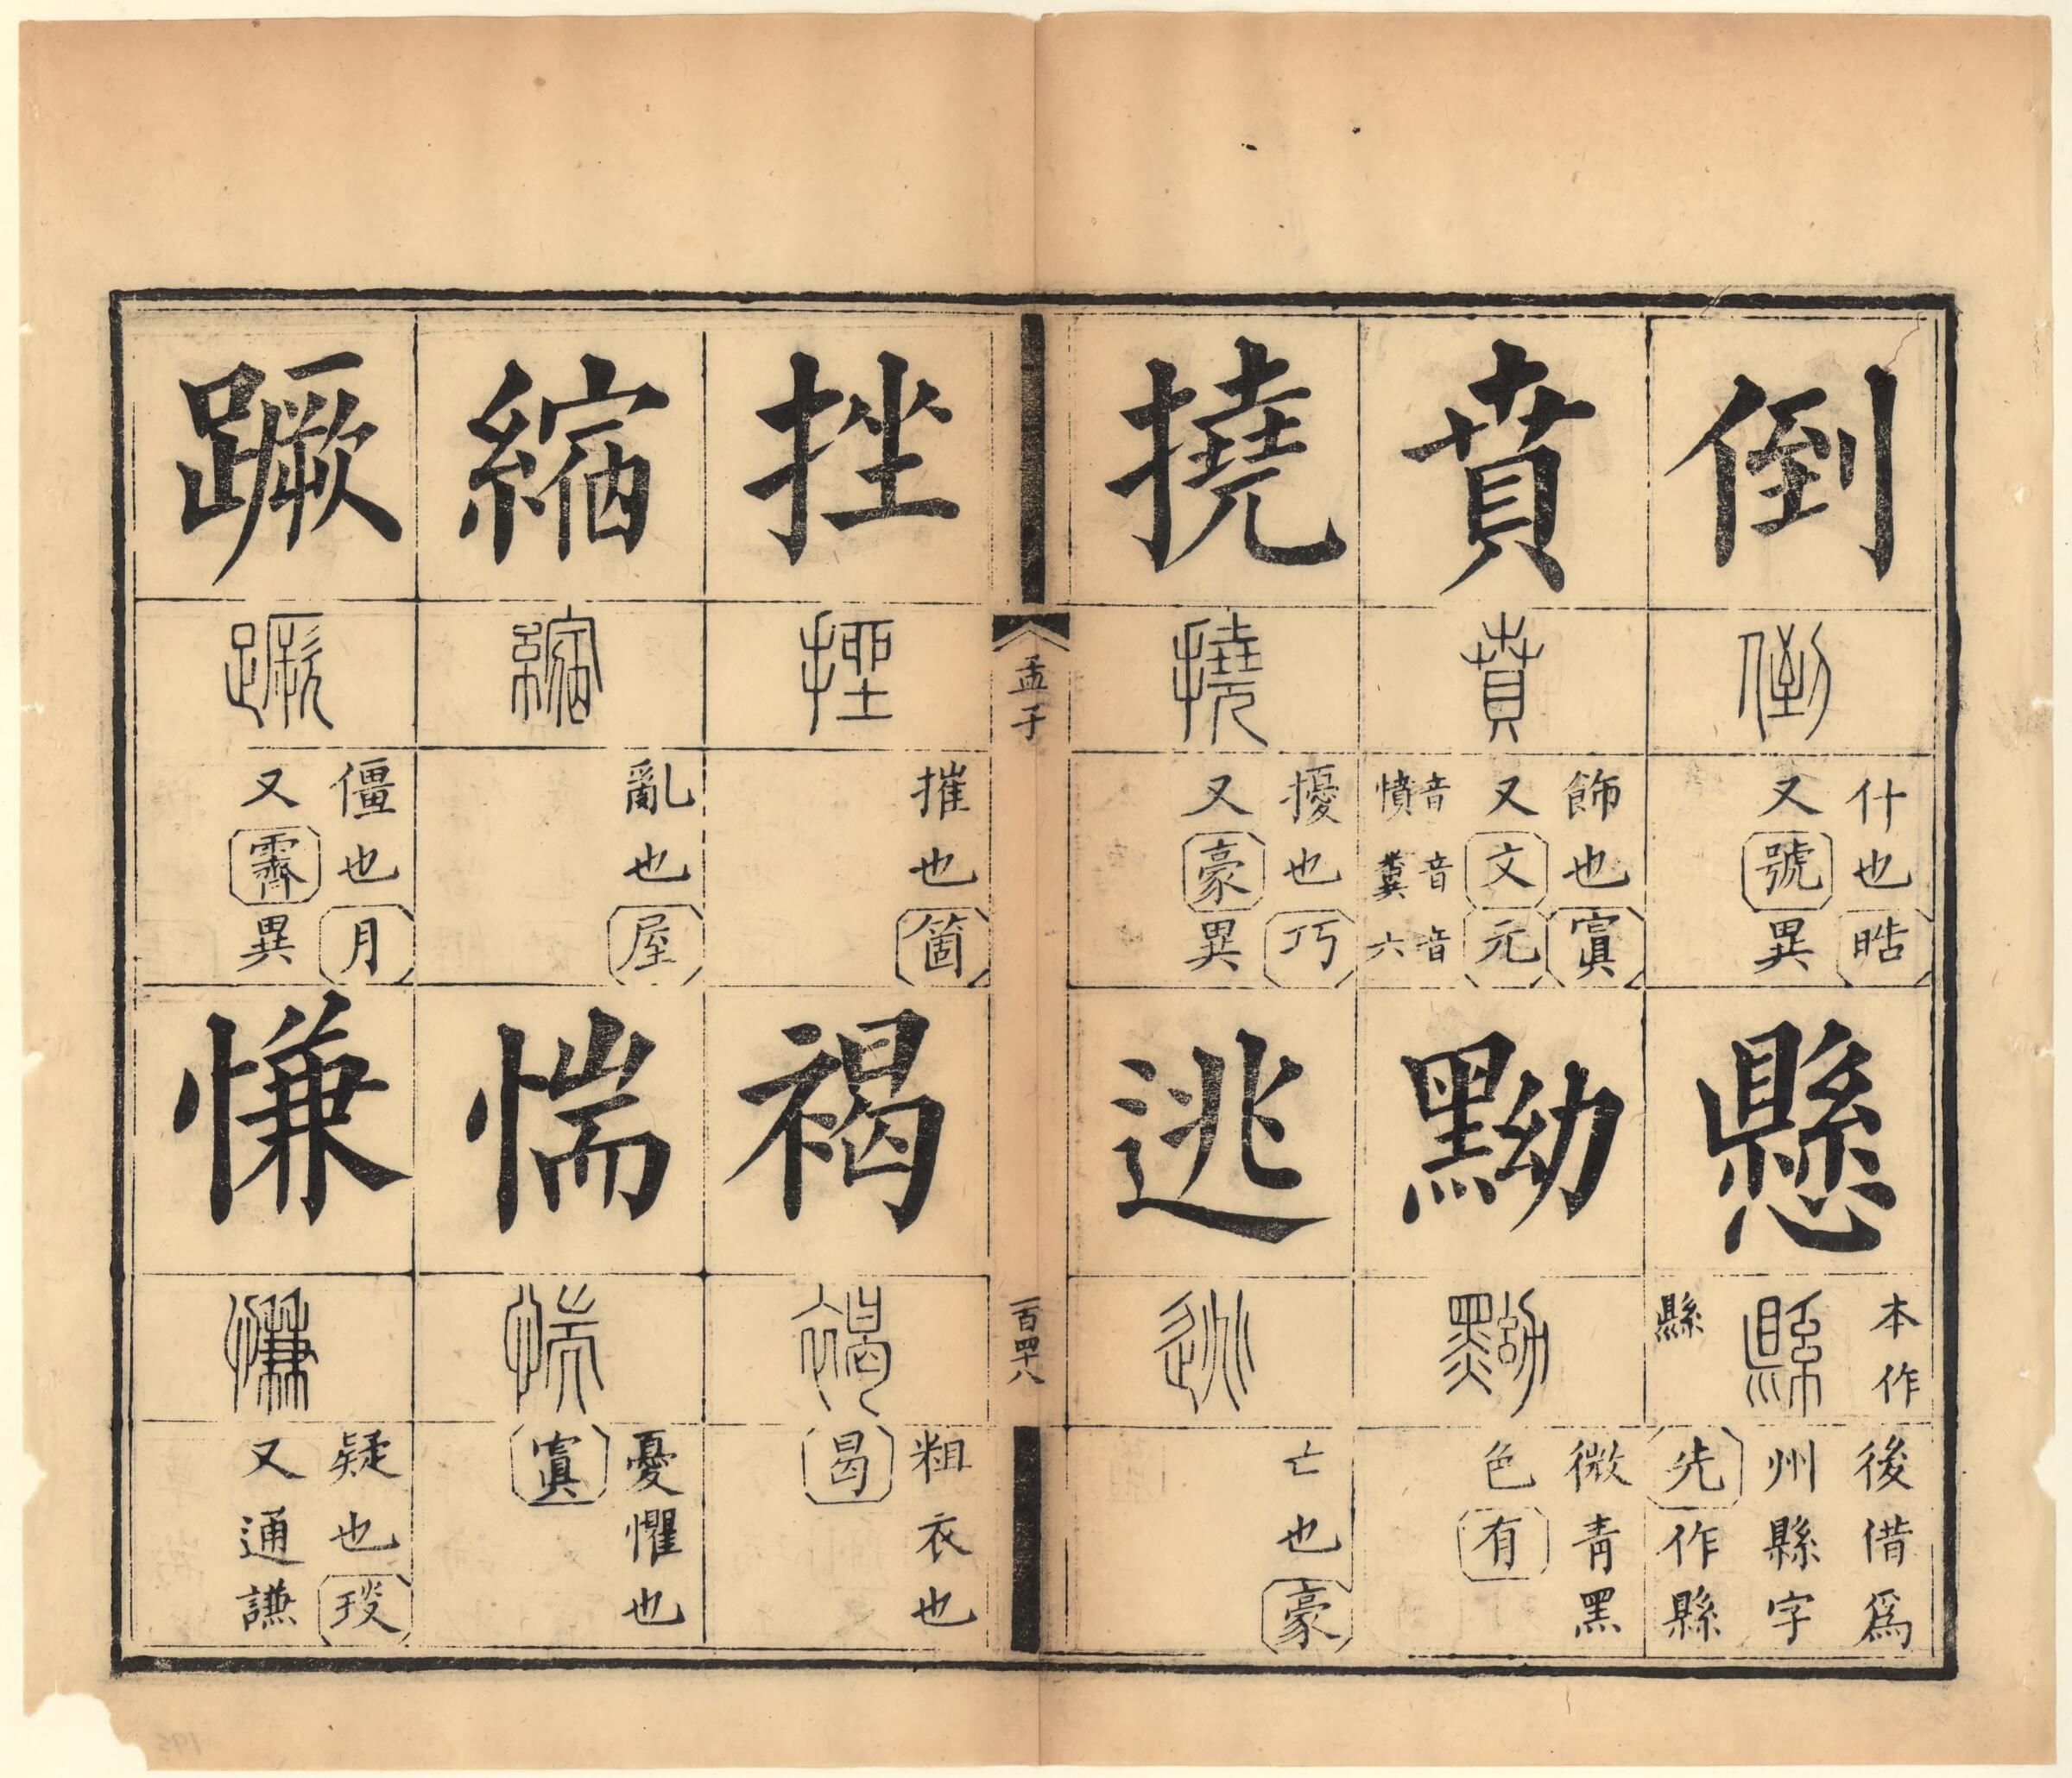 倒
倒
什也晧
又號異
懸
本作
縣
縣
後借爲
州縣字
先作縣
賁
賁
飾也寘
又文元
音憤
音糞
音六
黝
黝
微靑黑
色有
撓
撓
擾也巧
又豪異
逃
逃
亡也豪
孟子
一百四十八
挫
挫
摧也箇
褐
褐
粗衣也
曷
縮
縮
亂也屋
惴
惴
憂懼也
寘
蹶
蹶
僵也月
又霽異
慊
慊
疑也琰
又通謙